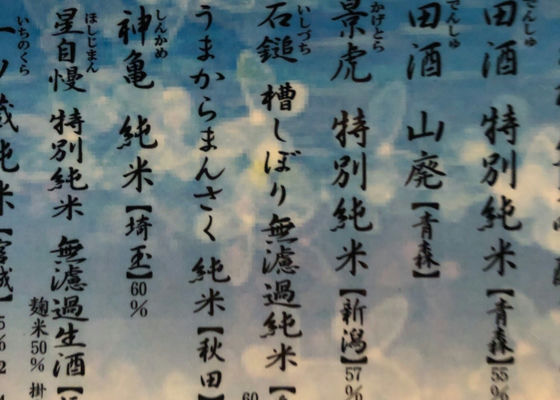 でんしゅ
田酒 特別純米【青森】55%
でんしゅ
田酒 山廃【青森】
かげとら
景虎 特別純米【新潟】57%
いしづち
石鎚 槽しぼり無濾過純米【
60
うまからまんさく 純米【秋田】
しんかめ
神亀 純米【埼玉】60%
ほしじまん
星自慢 特別純米 無濾過生酒【
麹米50% 掛
いちのくら
一ノ蔵純米【宮城】